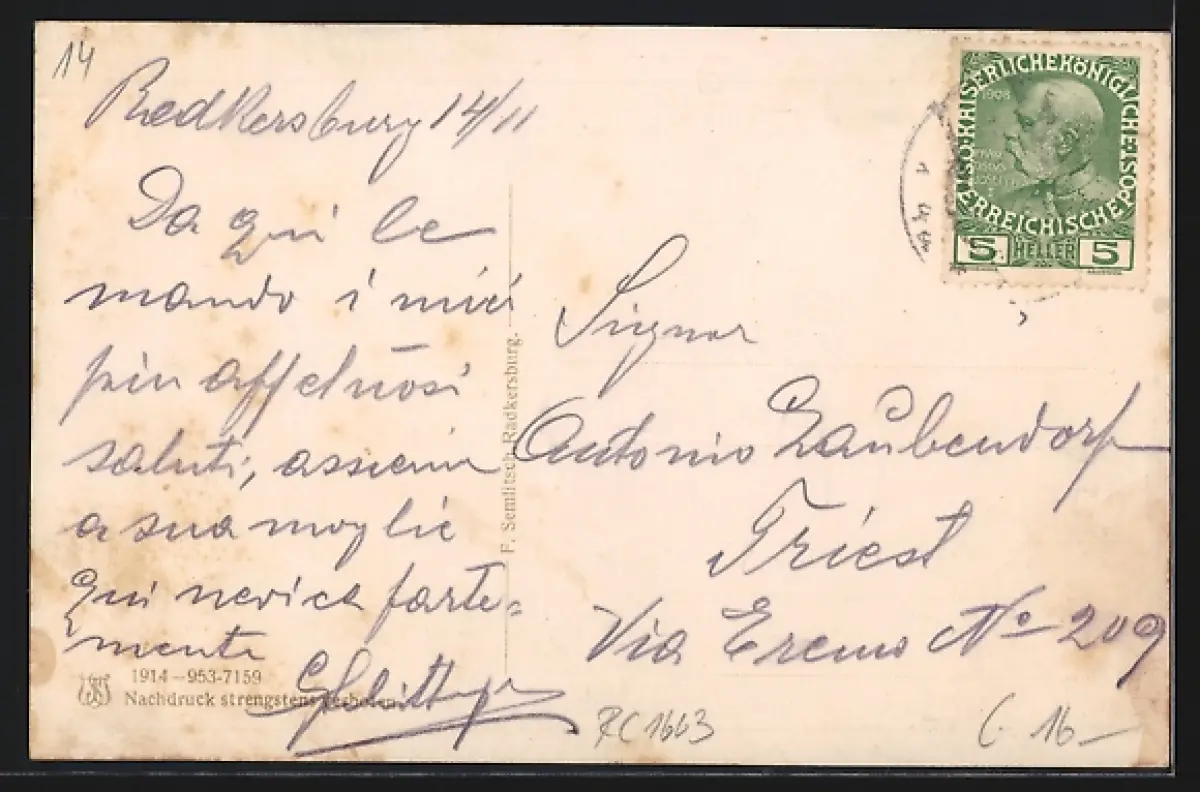 14
Radkersburg 14/11
Da qui le
mando i miei
più affetuosi
saluti, assieme
a sua moglie
Qui nevica forte=
mente
1914-953-7159
Nachdruck strengstens verboten.
F. Semlitsch, Radkersburg.
KAISERLICHE KÖNIGLICHE ÖSTERREICHISCHE POST
1908
5 HELLER 5
Signor
Antonio Laubendorf
Triest
Via Eremo No 209
RC1663
16-